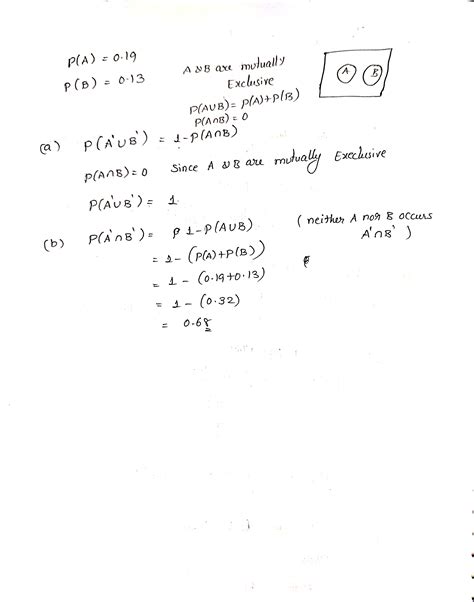 P(A) = 0.19
P(B) = 0.13
A & B are mutually
Exclusive
P(A∪B) = P(A)+P(B)
P(A∩B) = 0
A B
(a) P(A'∪B') = 1-P(A∩B)
P(A∩B)=0 Since A & B are mutually Execlusive
P(A'∪B') = 1
(b) P(A'∩B') = 1-P(A∪B) (neither A nor B occurs
A'∩B')
= 1 - (P(A)+P(B))
= 1 - (0.19+0.13)
= 1 - (0.32)
= 0.68